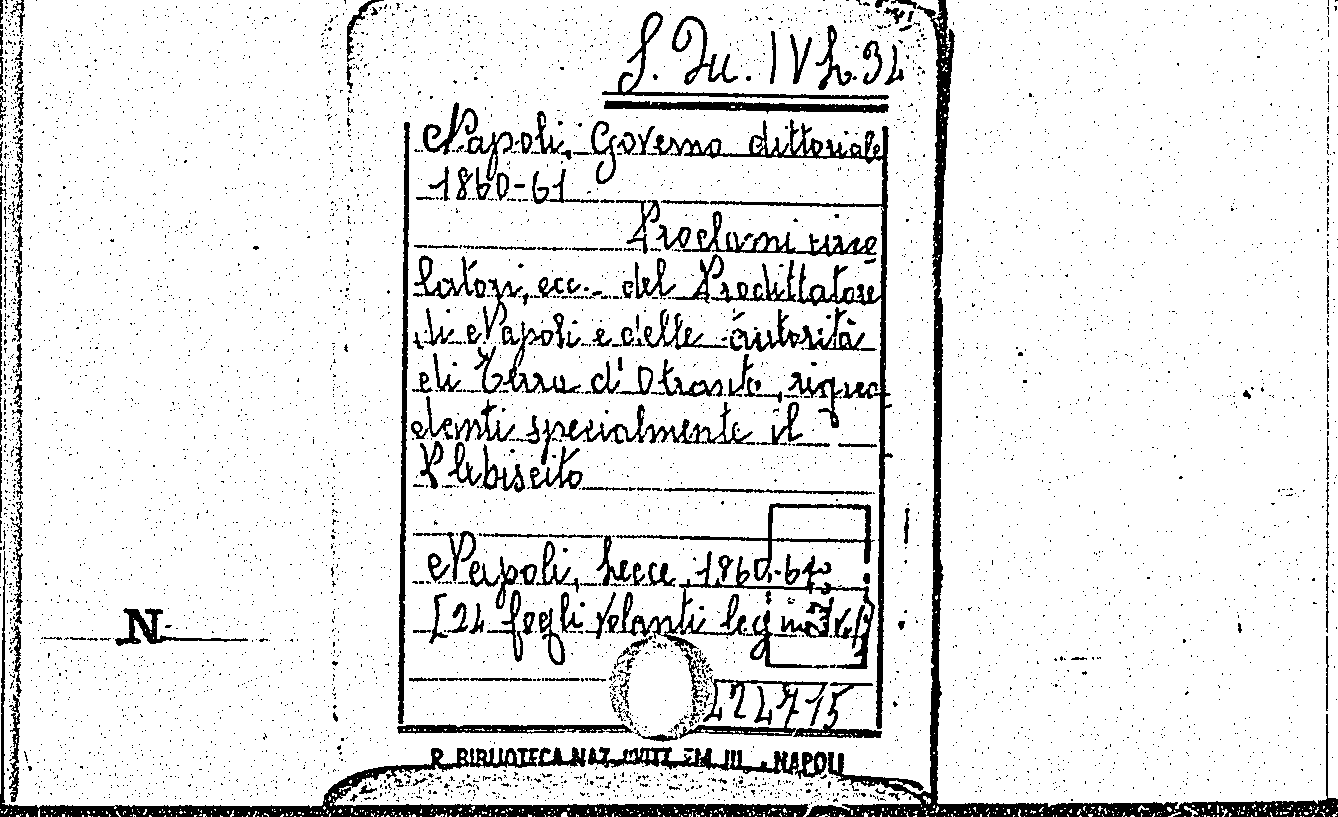 S. Qu. IV h. 34
Napoli, Governo dittoriale
1860-61
Proclami, circo
latori, ecc. del Prodittatore
di Napoli e delle autorità
di Terra d'Otranto, rigua
danti specialmente il
Plebiscito
Napoli, Lecce, 1860-61
[24 fogli volanti leg in
N
R. BIBLIOTECA NAZ. VITT. EM. III - NAPOLI